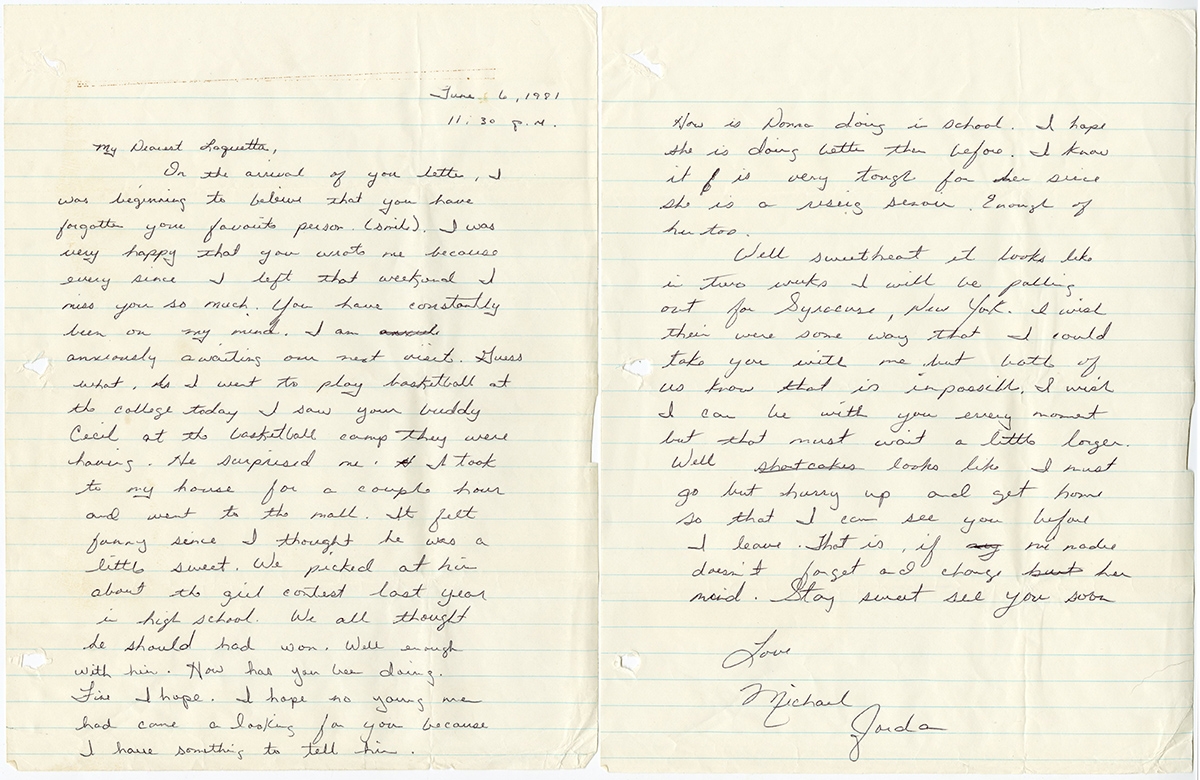 June 6, 1981
11:30 p.m.
My Dearest Laquetta,
In the arrival of you letter, I
was beginning to beleive that you have
forgotten your favorite person. (smile). I was
very happy that you wrote me because
every since I left that weekend I
miss you so much. You have constantly
been on my mind. I am
anxiously awaiting our next visit. Guess
what. As I went to play basketball at
the college today I saw your buddy
Cecil at the basketball camp they were
having. He surprised me. I took
to my house for a couple hour
and went to the mall. It felt
funny since I thought he was a
little sweet. We picked at him
about the girl contest last year
in high school. We all thought
he should had won. Well enough
with him. How has you been doing.
Fine I hope. I hope no young men
had came a looking for you because
I have something to tell him.
How is Donna doing in school. I hope
she is doing better then before. I know
it is very tough for her since
she is a riseig senior. Enough of
her too.
Well sweetheart it looks like
in two weeks I will be pulling
out for Syracuse, New York. I wish
their were some way that I could
take you with me but both of
us know that is inpossible. I wish
I can be with you every moment
but that must wait a little longer.
Well shortcakes looks like I must
go but hurry up and get home
so that I can see you before
I leave. That is, if
doesn't forget and change but her
mind. Stay sweet see you soon
Love
Michael
Jordan